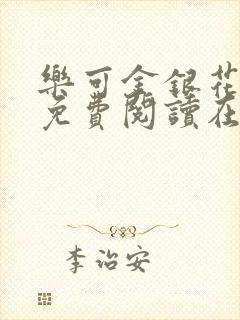 樂可金銀花
免費閱讀在
李治安